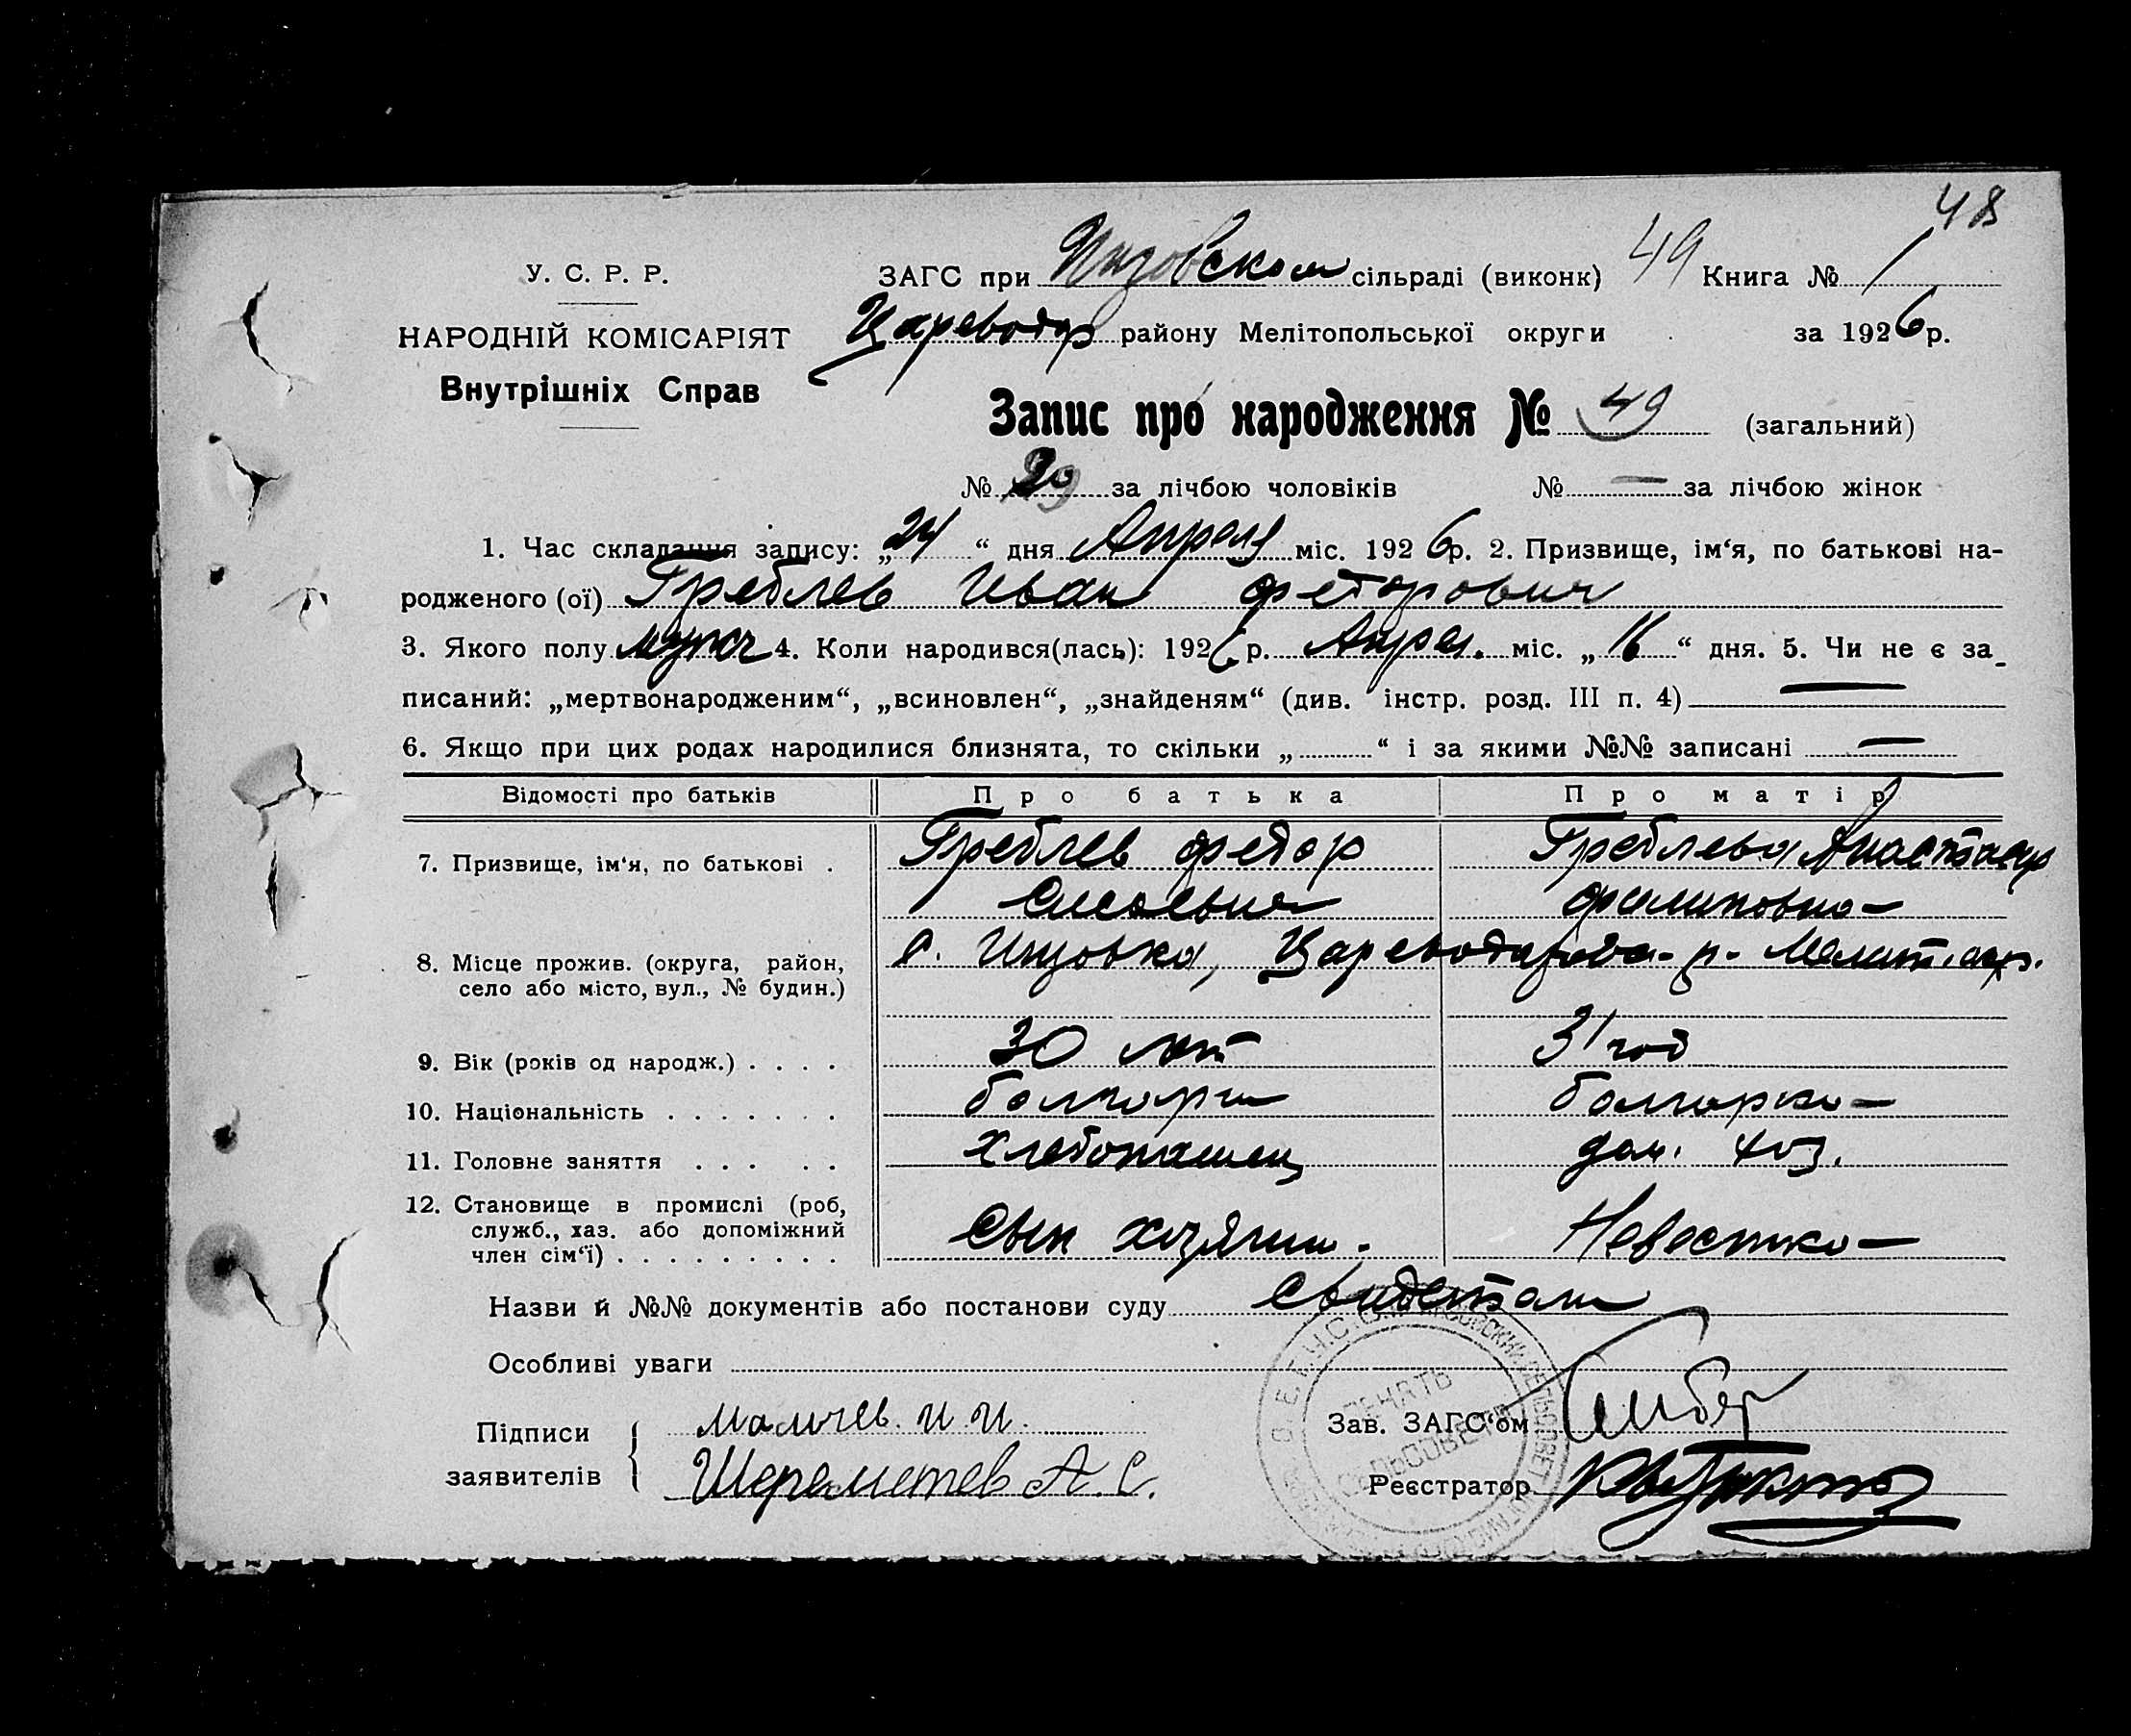 48
У. С. Р. Р. ЗАГС при Инзовском сільраді (виконк) 49 Книга № 1
НАРОДНІЙ КОМІСАРІЯТ Цареводар району Мелітопольської округи за 1926 р.
Внутрішніх Справ
Запис про народження № 49 (загальний)
№ 29 за лічбою чоловіків № — за лічбою жінок
1. Час складання запису: „24“ дня Апреля міс. 1926 р. 2. Призвище, ім‘я, по батькові на-
родженого (ої) Греблев Иван Федорович
3. Якого полу мужск 4. Коли народився(лась): 1926 р. Апрел. міс. „16“ дня. 5. Чи не є за-
писаний: „мертвонародженим“, „всиновлен“, „знайденям“ (див. інстр. розд. III п. 4) —
6. Якщо при цих родах народилися близнята, то скільки „ “ і за якими №№ записані —
Відомості про батьків Про батька Про матір
7. Призвище, ім‘я, по батькові . Греблев Федор Греблева Анастасия
Филиповна
8. Місце прожив. (округа, район, с. Инзовка, Цареводаровка р. Мелит. окр.
село або місто, вул., № будин.)
9. Вік (років од народж.) . . . . 30 лет 31 год
10. Національність . . . . . . . болгарин болгарка
11. Головне заняття . . . . . хлебопашец дом. хоз.
12. Становище в промислі (роб,
служб., хаз. або допоміжний сын хозяина. Невестка
член сім‘ї) . . . . . . . . .
Назви й №№ документів або постанови суду свидетели
Особливі уваги
Підписи Малчев. И. И. Зав. ЗАГС‘ом
заявителів Шереметев А. С. Реєстратор
ПЕЧАТЬ
СЕЛЬСОВЕТА